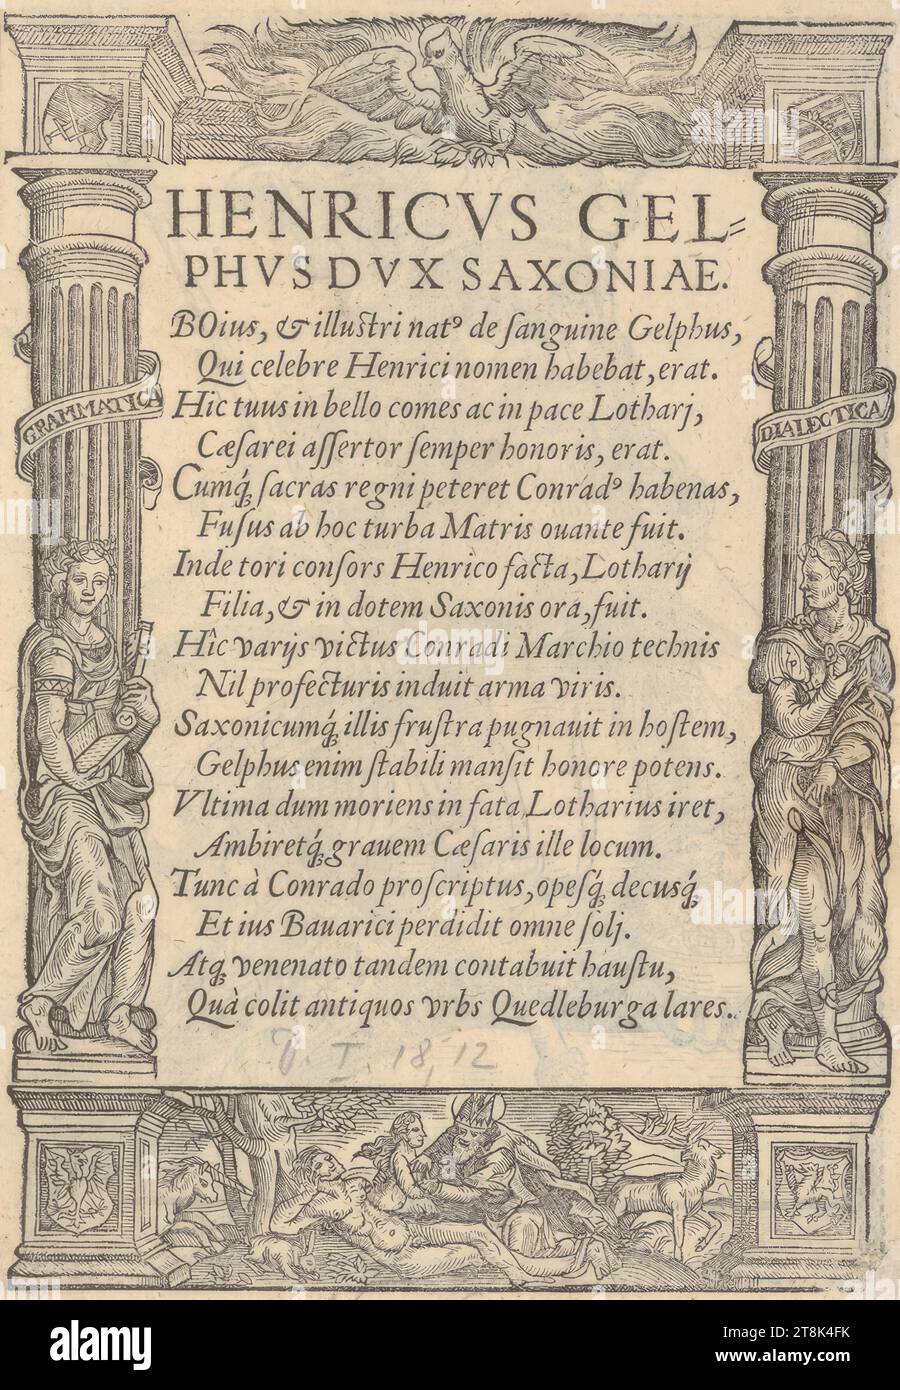 HENRICVS GEL=
PHVS DVX SAXONIAE.
BOius, & illustri natꝰ de sanguine Gelphus,
Qui celebre Henrici nomen habebat, erat.
Hic tuus in bello comes ac in pace Lotharj,
Cæsarei assertor semper honoris, erat.
Cumq́; sacras regni peteret Conradꝰ habenas,
Fusus ab hoc turba Matris ouante fuit.
Inde tori consors Henrico facta, Lotharij
Filia, & in dotem Saxonis ora, fuit.
Hîc varijs victus Conradi Marchio technis
Nil profecturis induit arma viris.
Saxonicumq́; illis frustra pugnauit in hostem,
Gelphus enim stabili mansit honore potens.
Vltima dum moriens in fata Lotharius iret,
Ambiretq́; grauem Cæsaris ille locum.
Tunc à Conrado proscriptus, opesq́; decusq́;
Et ius Bauarici perdidit omne solj.
Atq; venenato tandem contabuit haustu,
Quà colit antiquos vrbs Quedleburga lares.
GRAMMATICA
DIALECTICA
18,12
alamy
Image ID: 2T8K4FK
www.alamy.com